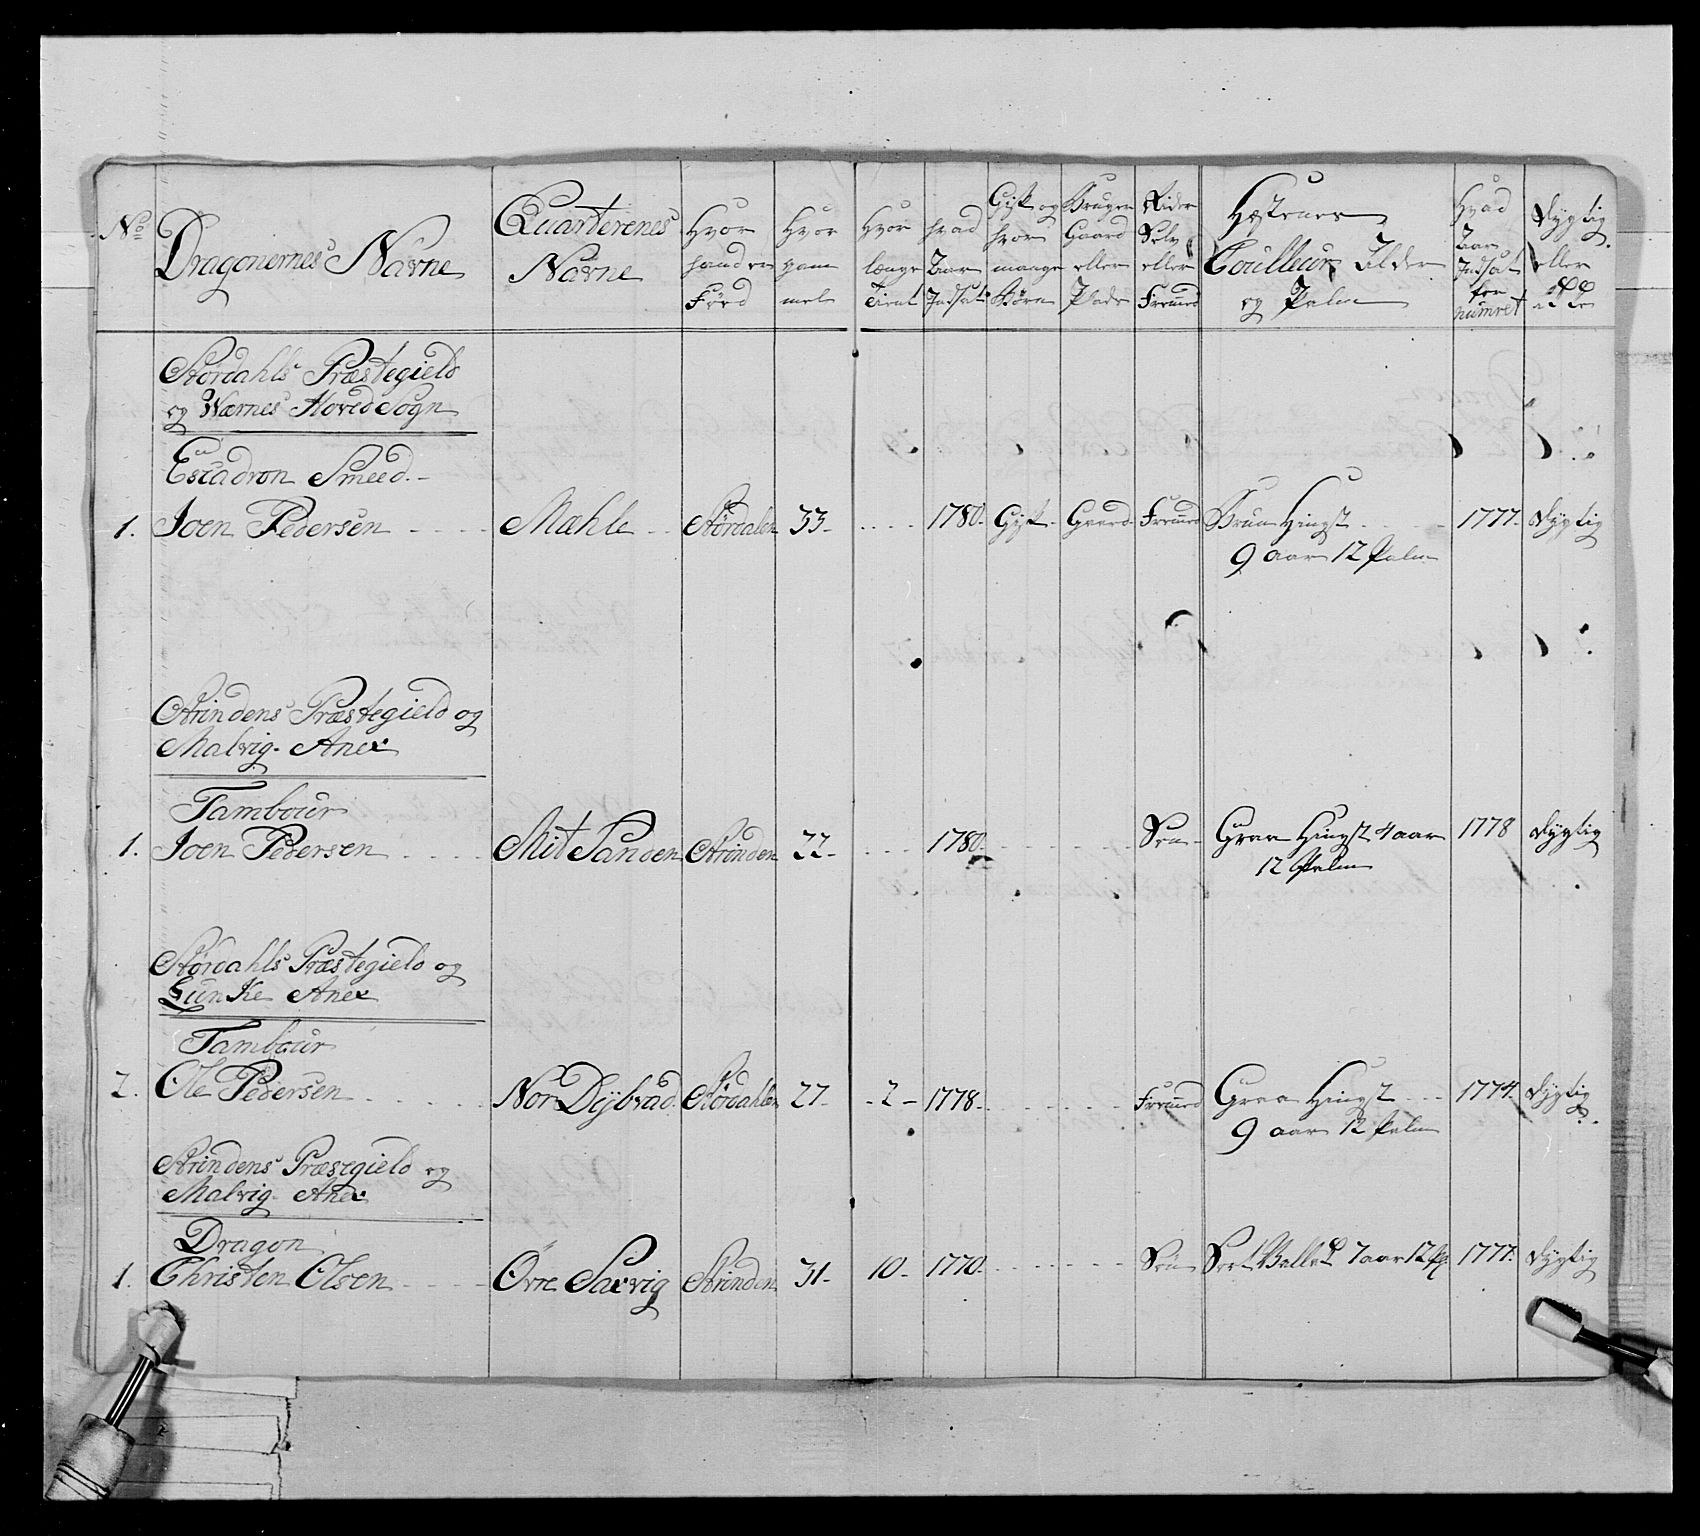 No Dragonernes Navne Quarterenes Navne Hvor hand er Fød Hvor gam mel Hvor længe Tient hvad Aar Indsat Gift og hvor mange Børn Bruger Gaard eller Plads Rider Selv eller Fremmed Hæstenes Coulleur Alder og Palm Hvad Aar Indsat for numret Dygtig eller
Størdahls Præstegield
og Wærnes Hoved Sogn
Escadron Smeed.
1. Joen Pedersen Mæhle Størdalen 33 1780. Gift Gaard Fremmed Brun Hingst 1777. Dygtig
9 aar 12 Palm
Strindens Præstegield og
Malvig Anex
Tambour
1. Joen Pedersen Mit Sanden Strinden 22 1780. Søn Graa Hingst 4 aar 1778 Dygtig
12 Palm
Størdahls Præstegield og
Lunke Anex
Tambour
2. Ole Pedersen Nor Dybvad Størdahlen 27 2 1778. Fremmed Graa Hingst 1774. Dygtig
9 aar 12 Palm
Strindens Præstegield og
Malvig Anex
Dragon
1. Christen Olsen Øvre Saxvig Strinden 31 10 1770. Søn Sort Vallak 7 aar 12 P. 1777. Dygtig